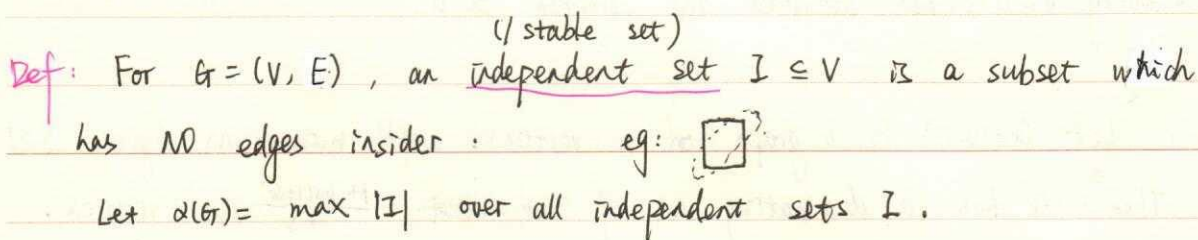 (/ stable set)
Def: For G = (V, E), an independent set I ⊆ V is a subset which
has NO edges insider. eg:
Let α(G) = max |I| over all independent sets I.